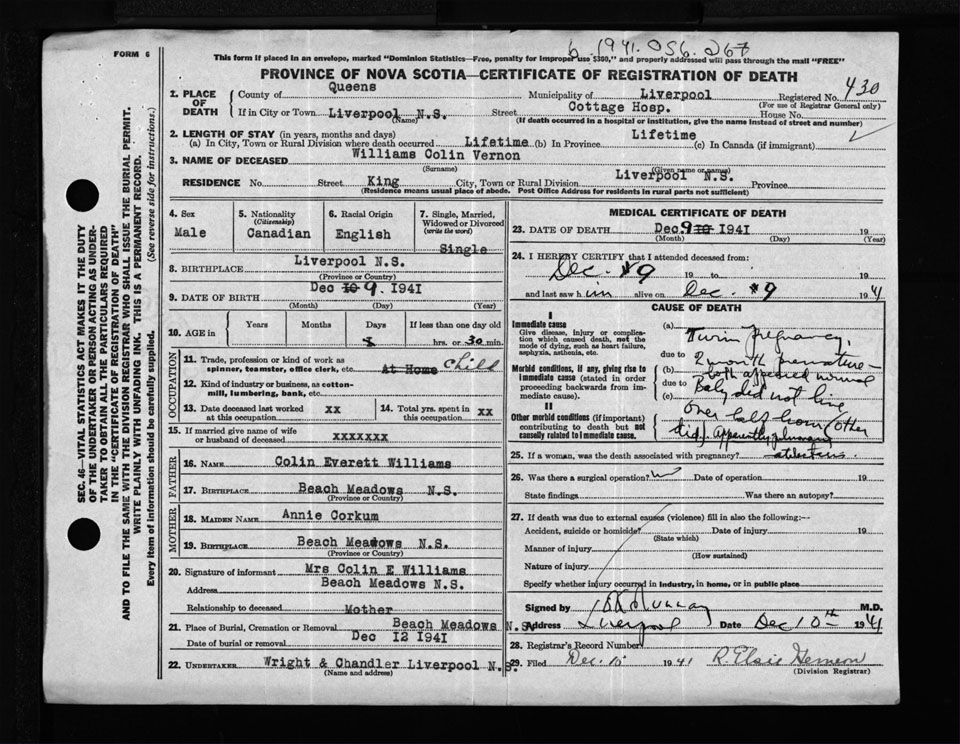 6. 1941. 056. 267
FORM 6
This form if placed in an envelope, marked "Dominion Statistics—Free, penalty for improper use $300," and properly addressed will pass through the mail "FREE"
PROVINCE OF NOVA SCOTIA—CERTIFICATE OF REGISTRATION OF DEATH
1. PLACE OF DEATH
County of Queens Municipality of Liverpool Registered No. 430
(For use of Registrar General only)
If in City or Town Liverpool N.S. Street Cottage Hosp. House No.
(Name) (If death occurred in a hospital or institution, give the name instead of street and number)
2. LENGTH OF STAY (in years, months and days)
(a) In City, Town or Rural Division where death occurred Lifetime (b) In Province Lifetime (c) In Canada (if immigrant)
3. NAME OF DECEASED Williams Colin Vernon
(Surname) (Given name or names)
RESIDENCE No. Street King City, Town or Rural Division Liverpool N.S. Province
(Residence means usual place of abode. Post Office Address for residents in rural parts not sufficient)
4. Sex
Male
5. Nationality
(Citizenship)
Canadian
6. Racial Origin
English
7. Single, Married, Widowed or Divorced
(write the word)
Single
8. BIRTHPLACE Liverpool N.S.
(Province or Country)
9. DATE OF BIRTH Dec 10 9. 1941
(Month) (Day) (Year)
10. AGE in
Years Months Days If less than one day old
hrs. or 30 min.
OCCUPATION
11. Trade, profession or kind of work as spinner, teamster, office clerk, etc. At Home Child
12. Kind of industry or business, as cotton-mill, lumbering, bank, etc.
13. Date deceased last worked at this occupation xx
14. Total yrs. spent in this occupation xx
15. If married give name of wife or husband of deceased xxxxxxx
FATHER
16. NAME Colin Everett Williams
17. BIRTHPLACE Beach Meadows N.S.
(Province or Country)
MOTHER
18. MAIDEN NAME Annie Corkum
19. BIRTHPLACE Beach Meadows N.S.
(Province or Country)
20. Signature of informant Mrs Colin E Williams
Address Beach Meadows N.S.
Relationship to deceased Mother
21. Place of Burial, Cremation or Removal Beach Meadows N.S.
Date of burial or removal Dec 12 1941
22. UNDERTAKER Wright & Chandler Liverpool N.S.
(Name and address)
MEDICAL CERTIFICATE OF DEATH
23. DATE OF DEATH Dec 9 10 1941 19
(Month) (Day) (Year)
24. I HEREBY CERTIFY that I attended deceased from:
Dec. 9 19 to 19
and last saw him alive on Dec. 9 1941
CAUSE OF DEATH
I
Immediate cause
Give disease, injury or complication which caused death, not the mode of dying, such as heart failure, asphyxia, asthenia, etc.
Morbid conditions, if any, giving rise to immediate cause (stated in order proceeding backwards from immediate cause).
II
Other morbid conditions (if important) contributing to death but not causally related to immediate cause.
(a) Twin pregnancy,
due to
(b) 2 month premature —
both appeared normal
due to
(c) Baby did not live
over half hour (other
did). Apparently pulmonary
atelectasis.
25. If a woman, was the death associated with pregnancy?
26. Was there a surgical operation? no Date of operation 19
State findings Was there an autopsy?
27. If death was due to external causes (violence) fill in also the following:—
Accident, suicide or homicide? Date of injury 19
(State which)
Manner of injury
(How sustained)
Nature of injury
Specify whether injury occurred in industry, in home, or in public place
Signed by Murray M.D.
Address Liverpool Date Dec 10th 1941
28. Registrar's Record Number
29. Filed Dec. 10 1941 R. Elsie
(Division Registrar)
SEC. 46—VITAL STATISTICS ACT MAKES IT THE DUTY
OF THE UNDERTAKER OR PERSON ACTING AS UNDER-
TAKER TO OBTAIN ALL THE PARTICULARS REQUIRED
IN THE "CERTIFICATE OF REGISTRATION OF DEATH"
AND TO FILE THE SAME WITH THE DIVISION REGISTRAR WHO SHALL ISSUE THE BURIAL PERMIT.
WRITE PLAINLY WITH UNFADING INK. THIS IS A PERMANENT RECORD.
Every item of information should be carefully supplied. (See reverse side for instructions.)